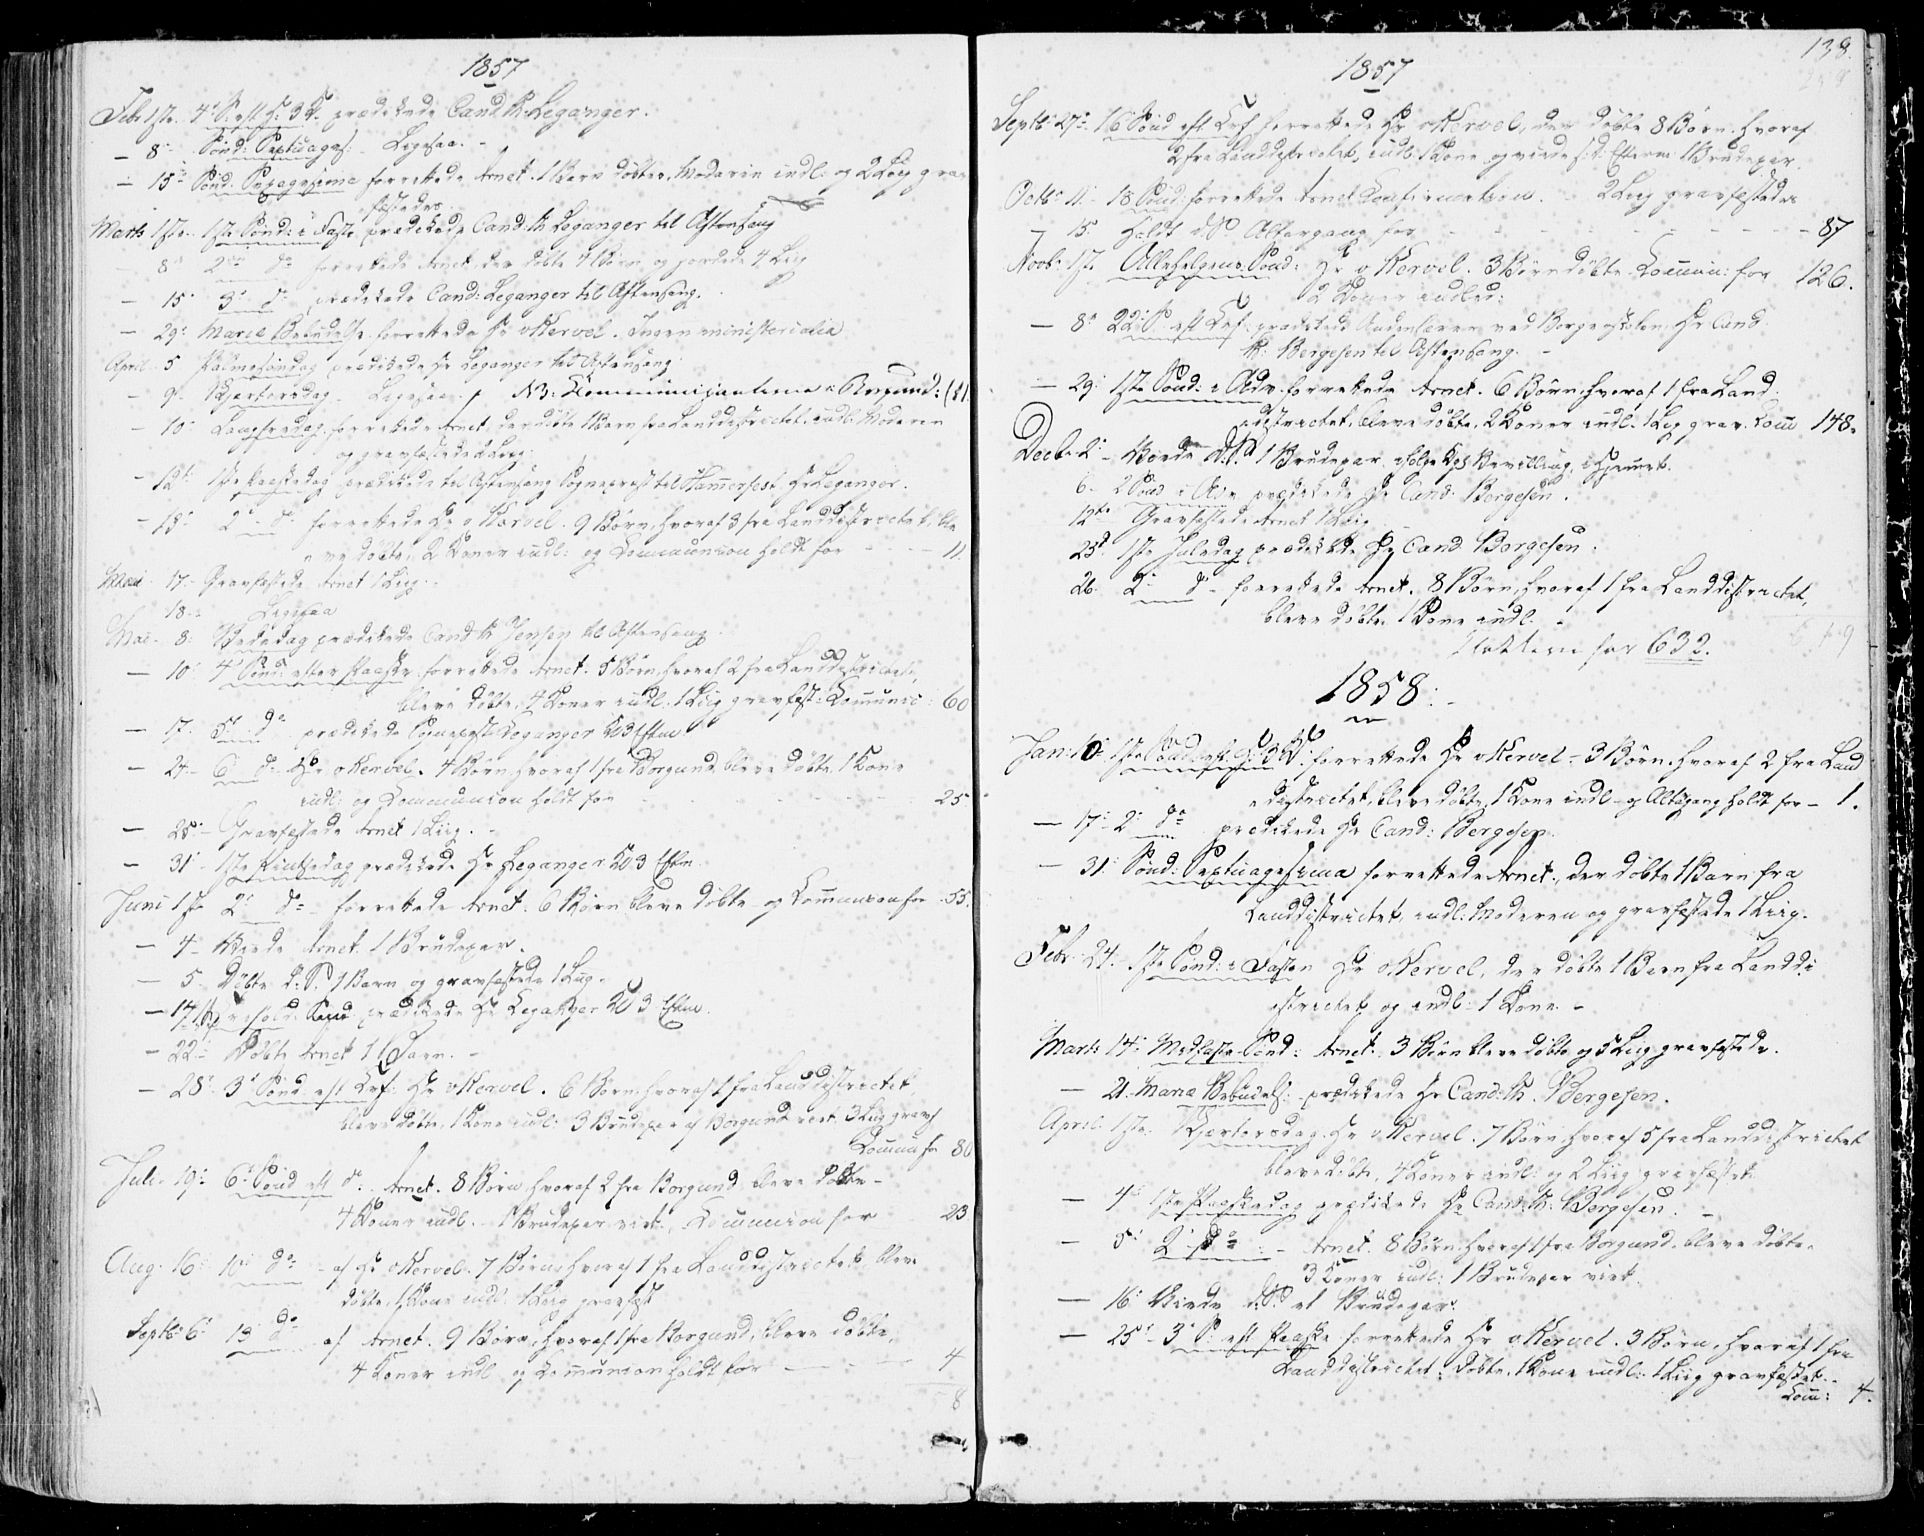 1857
Febr 1ste 4 S. eft H. 3 K. prædikede Cand. th. Leganger.
— 8 Sönd: Septuages: Ligesaa.
— 15 Sönd. Sexagesima forrettede Arnet. 1 Barn döbtes, Moderen indl: og 2 Liig grav
fæstedes.
Marts 1ste 1ste Sönd: i Faste prædikede Cand. th Leganger til Aftensang
8 2 do forrettede Arnet, der döbte 4 Börn og jordede 4 Liig
— 15 3 do prædikede Cand: Leganger til Aftensang.
— 29 Mariæ Bebudelse forrettede Hr v Kervel. Ingen ministerialia
April. 5 Palmesöndag prædikede Hr Leganger til Aftensang
— 9 Skjærtorsdag. Ligesaa. NB: Communicanterne i Borgund:
— 10 Langfredag forrettede Arnet, der döbte 1 Barn fra Landdistrictet, indl. Moderen
og gravfæstede 1 Liig.
— 12 1ste Paaskedag prædikede til Aftensang Sogneprest til Hammerfest Hr Leganger.
— 13 2 do forrettede Hr v Kervel. 9 Börn, hvoraf 3 fra Landdistrictet, ble
ve döbte, 2 Koner indl: og Communion holdt for — — 11.
17 Gravfæstede Arnet 1 Liig.
18 Ligesaa
Mai. 8 Bededag prædikede Cand th Jensen til Aftensang
— 10 4 Sönd: efter Paaske forrettede Arnet. 5 Börn, hvoraf 2 fra Landdistrictet,
bleve döbte, 4 Koner indl. 1 Liig gravfæst. Communic: 60
— 17 5 do prædikede Sogneprest Leganger Kl 3 Eftm
— 24 6 do Hr v Kervel. 4 Börn, hvoraf 1 fra Borgund, bleve döbte, 1 Kone
indl: og Communion holdt for 25
— 28 Gravfæstede Arnet 1 Liig.
— 31 1ste Pintsedag prædikede Hr Leganger Kl 3 Eftm.
Juni 1ste 2 do forrettede Arnet. 6 Börn bleve döbte og Communion for 55.
— 4 Viede Arnet 1 Brudepar.
— 5 Döbte d: S. 1 Barn og gravfæstede 1 Liig.
— 14 prædikede Hr Leganger Kl 3 Eftm.
— 22 Döbte Arnet 1 Barn.
— 28 3 Sönd eft Tref: Hr v Kervel. 6 Börn, hvoraf 1 fra Landdistrictet,
bleve döbte, 1 Kone indl: 3 Brudepar af Borgund viet. 3 Liig gravf
Commu for 80
Juli. 19 6 Sönd eft do Arnet. 8 Börn, hvoraf 2 fra Borgund bleve döbte
4 Koner indl. 1 Brudepar viet. Communion for 23
Aug. 16 10 do af Hr v Kervel. 7 Börn, hvoraf 1 fra Landdistrictet, bleve
döbte, 1 Kone indl 1 Liig gravfæst
Septb: 6 13 do af Arnet. 9 Börn, hvoraf 1 fra Borgund, bleve döbte,
4 Koner indl og Communion holdt for — 4
8
138.
1857
Septb: 27 16 Sönd eft Tref forrettede Hr v Kervel, der döbte 8 Börn, hvoraf
2 fra Landdistrictet, indl: 1 Kone og viede 1 Brudepar
Octb: 11. 18 Sönd: forrettede Arnet Confirmation. 2 Liig gravfæstedes
— 15 holdt d. S. Altergang for — — 87
Novb: 1ste Allehelgens Sönd: Hr v Kervel. 3 Börn döbte. Commun: for 126.
2 Koner indled:
— 8 22 S. eft Tref: prædikede ved Borgerskolen Hr Cand
th: Bergesen til Aftensang.
— 29 1ste Sönd: i Adv: forrettede Arnet. 6 Börn, hvoraf 1 fra Land:
districtet, bleve döbte, 2 Koner indl. 1 Liig grav. Comm 148.
Decbr 2 Viede d. S. 1 Brudepar ifölge Kgl Bevilling i Hjemmet.
6 2 Sönd i Adv prædikede Hr Cand Bergesen.
12te Gravfæstede Arnet 1 Liig
25 1ste Juledag prædikede Hr Cand Bergesen.
26 2 do forrettede Arnet. 8 Börn, hvoraf 1 fra Landdistrictet,
bleve döbte, 1 Kone indl.
for 632.
1858:
Jan: 10 1ste Sönd eft H. 3 K. forrettede Hr v Kervel — 3 Börn, hvoraf 2 fra Land
districtet, bleve döbte, 1 Kone indl og Altergang holdt for — 1.
— 17 2 do prædikede Hr Cand: Bergesen
— 31 Sönd: Septuagesima forrettede Arnet, der döbte 1 Barn fra
Landdistrictet, indl: Moderen og gravfæstede 1 Liig.
Febr. 24 1ste Sönd: i Fasten Hr v Kervel, der döbte 1 Barn fra Landdi
strictet og indl: 1 Kone.
Marts 14 Midfaste Sönd: Arnet. 3 Börn bleve döbte og 5 Liig gravfæstede.
— 21. Mariæ Bebudels: prædikede Hr Cand: th. Bergesen.
April 1ste Skjærtorsdag. Hr v Kervel. 7 Börn, hvoraf 5 fra Landdistrictet
bleve döbte, 4 Koner indl. og 2 Liig gravfæstet.
— 4 1ste Paaskedag prædikede Hr Cand th: Bergesen.
— 5 2 do Arnet. 8 Börn, hvoraf 1 fra Borgund, bleve döbte.
3 Koner indl: 1 Brudepar viet.
— 16 Viede d. S. et Brudepar.
— 25 3 S. eft Paaske forrettede Hr v Kervel. 3 Börn, hvoraf 1 fra
Landdistrictet, döbte, 1 Kone indl: 1 Liig gravfæstet.
Com: 4.